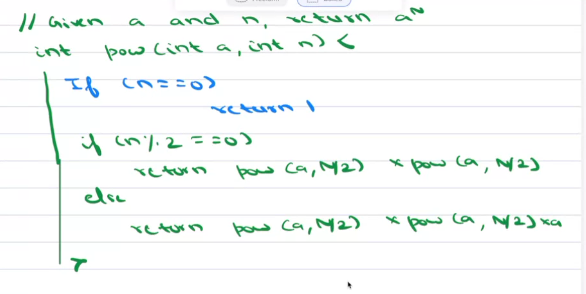 // Given a and n, return a^N
int pow (int a, int n) {
If (n==0)
return 1
if (n % 2 == 0)
return pow (a, N/2) * pow (a, N/2)
else
return pow (a, N/2) * pow (a, N/2) * a
}